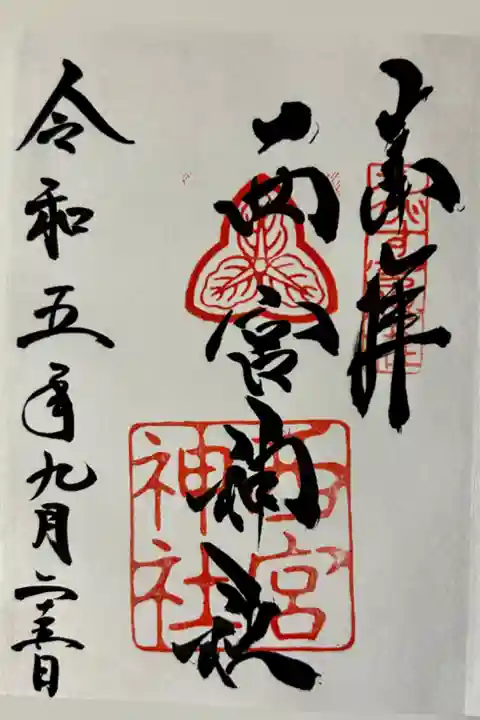 奉拝
西宮神社
西宮
神社
令和五年九月二十三日